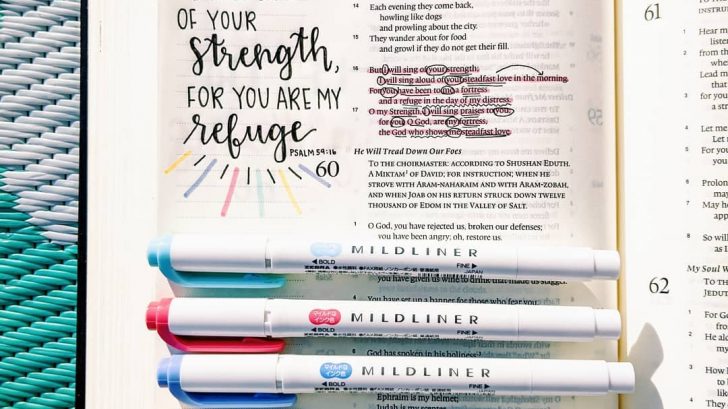 OF YOUR
strength,
FOR YOU ARE MY
refuge
PSALM 59:16
14 Each evening they come back,
howling like dogs
and prowling about the city.
15 They wander about for food
and growl if they do not get their fill.
16 But I will sing of your strength;
I will sing aloud of your steadfast love in the morning.
For you have been to me a fortress
and a refuge in the day of my distress.
17 O my Strength, I will sing praises to you,
for you, O God, are my fortress,
the God who shows me steadfast love.
He Will Tread Down Our Foes
60
TO THE CHOIRMASTER: ACCORDING TO SHUSHAN EDUTH.
A MIKTAM OF DAVID; FOR INSTRUCTION; WHEN HE
STROVE WITH ARAM-NAHARAIM AND WITH ARAM-ZOBAH,
AND WHEN JOAB ON HIS RETURN STRUCK DOWN TWELVE
THOUSAND OF EDOM IN THE VALLEY OF SALT.
1 O God, you have rejected us, broken our defenses;
you have been angry; oh, restore us.
MILDLINER
BOLD
FINE
JAPAN
you have given us wine to drink that made us stagger.
You have set up a banner for those who fear you,
マイルドな
インク色
MILDLINER
BOLD
FINE
JAPAN
God has spoken in his holiness:
マイルドな
インク色
MILDLINER
BOLD
FINE
JAPAN
Ephraim is my helmet;
Judah is my scepter.
61
1 Hear m
2 from th
Lead m
3 for you
4 Let me
5 For you
6 Prolon
7 May he
8 So will
62
My Soul W
TO TH
JEDUT
1 For G
2 He alo
3 How l